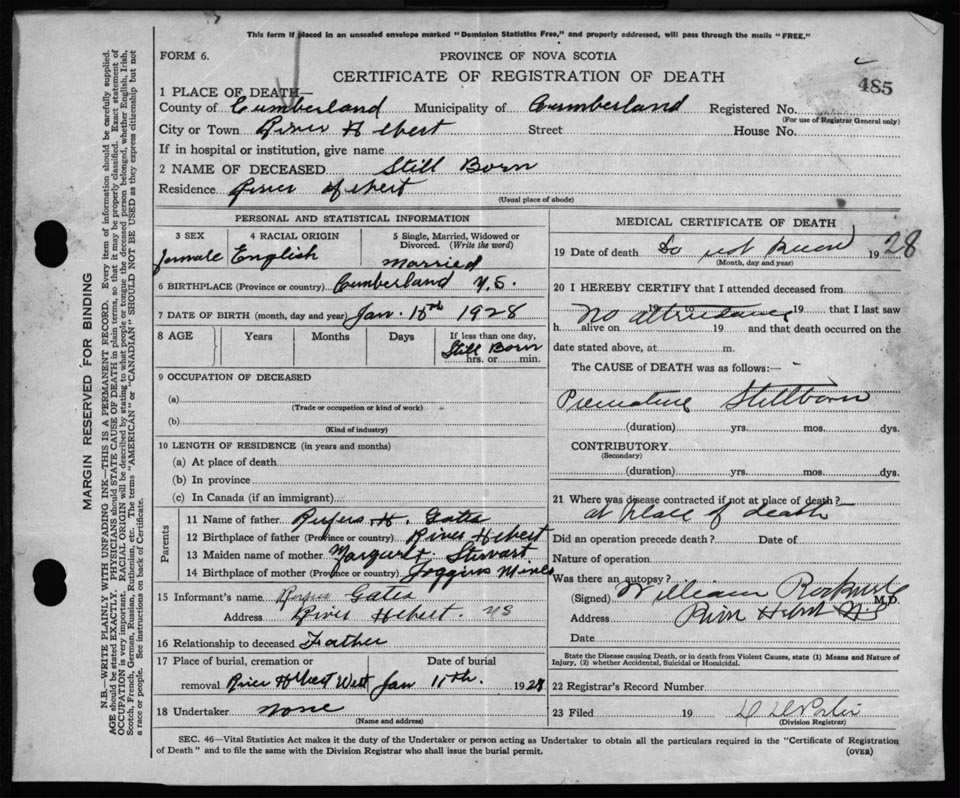 This form if placed in an unsealed envelope marked "Dominion Statistics Free," and properly addressed, will pass through the mails "FREE."
FORM 6.
PROVINCE OF NOVA SCOTIA
CERTIFICATE OF REGISTRATION OF DEATH
485
1 PLACE OF DEATH—
County of Cumberland Municipality of Cumberland Registered No.
(For use of Registrar General only)
City or Town River Hebert Street House No.
If in hospital or institution, give name
2 NAME OF DECEASED Still Born
Residence River Hebert
(Usual place of abode)
PERSONAL AND STATISTICAL INFORMATION
3 SEX 4 RACIAL ORIGIN 5 Single, Married, Widowed or Divorced. (Write the word)
female English Married
6 BIRTHPLACE (Province or country) Cumberland N.S.
7 DATE OF BIRTH (month, day and year) Jan. 1928
8 AGE Years Months Days If less than one day,
Still Born
hrs. or min.
9 OCCUPATION OF DECEASED
(a)
(Trade or occupation or kind of work)
(b)
(Kind of industry)
10 LENGTH OF RESIDENCE (in years and months)
(a) At place of death
(b) In province
(c) In Canada (if an immigrant)
Parents
11 Name of father Rufus H. Gates
12 Birthplace of father (Province or country) River Hebert
13 Maiden name of mother Margaret Stewart
14 Birthplace of mother (Province or country) Joggins Mines
15 Informant's name Rufus Gates
Address River Hebert. NS
16 Relationship to deceased Father
17 Place of burial, cremation or removal River Hebert West
Date of burial Jan 11th. 1928
18 Undertaker none
(Name and address)
MEDICAL CERTIFICATE OF DEATH
19 Date of death 1928
(Month, day and year)
20 I HEREBY CERTIFY that I attended deceased from
19 to 19 that I last saw
No attendance
h alive on 19 and that death occurred on the
date stated above, at m.
The CAUSE of DEATH was as follows:—
Premature Stillborn
(duration) yrs. mos. dys.
CONTRIBUTORY
(Secondary)
(duration) yrs. mos. dys.
21 Where was disease contracted if not at place of death?
at place of death
Did an operation precede death? Date of
Nature of operation
Was there an autopsy?
(Signed) William M.D.
Address River Hebert NS
Date
State the Disease causing Death, or in death from Violent Causes, state (1) Means and Nature of Injury, (2) whether Accidental, Suicidal or Homicidal.
22 Registrar's Record Number
23 Filed 19
(Division Registrar)
SEC. 46—Vital Statistics Act makes it the duty of the Undertaker or person acting as Undertaker to obtain all the particulars required in the "Certificate of Registration
of Death" and to file the same with the Division Registrar who shall issue the burial permit.
(OVER)
MARGIN RESERVED FOR BINDING
N.B.—WRITE PLAINLY WITH UNFADING INK—THIS IS A PERMANENT RECORD. Every item of information should be carefully supplied.
AGE should be stated EXACTLY. PHYSICIANS should STATE CAUSE OF DEATH in plain terms, so that it may be properly classified. Exact statement of
OCCUPATION is very important. RACIAL ORIGIN will be described by stating to what people or tongue the deceased person belonged, whether English, Irish,
Scotch, French, German, Russian, Ruthenian, etc. The terms "AMERICAN" or "CANADIAN" SHOULD NOT BE USED as they express citizenship but not
a race or people. See instructions on back of Certificate.